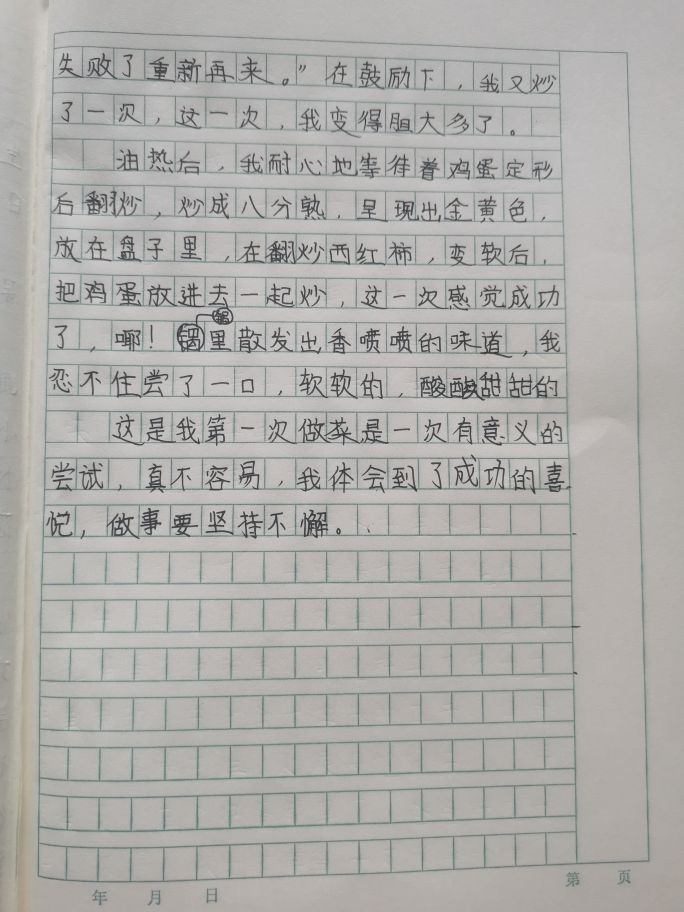 失败了重新再来。”在鼓励下，我又炒
了一次，这一次，我变得胆大多了。
油热后，我耐心地等待着鸡蛋定形
后翻炒，炒成八分熟，呈现出金黄色，
放在盘子里，在翻炒西红柿，变软后，
把鸡蛋放进去一起炒，这一次感觉成功
了，哪！锅里散发出香喷喷的味道，我
忍不住尝了一口，软软的，酸酸甜甜的
这是我第一次做菜是一次有意义的
尝试，真不容易，我体会到了成功的喜
悦，做事要坚持不懈。
年 月 日
第 页